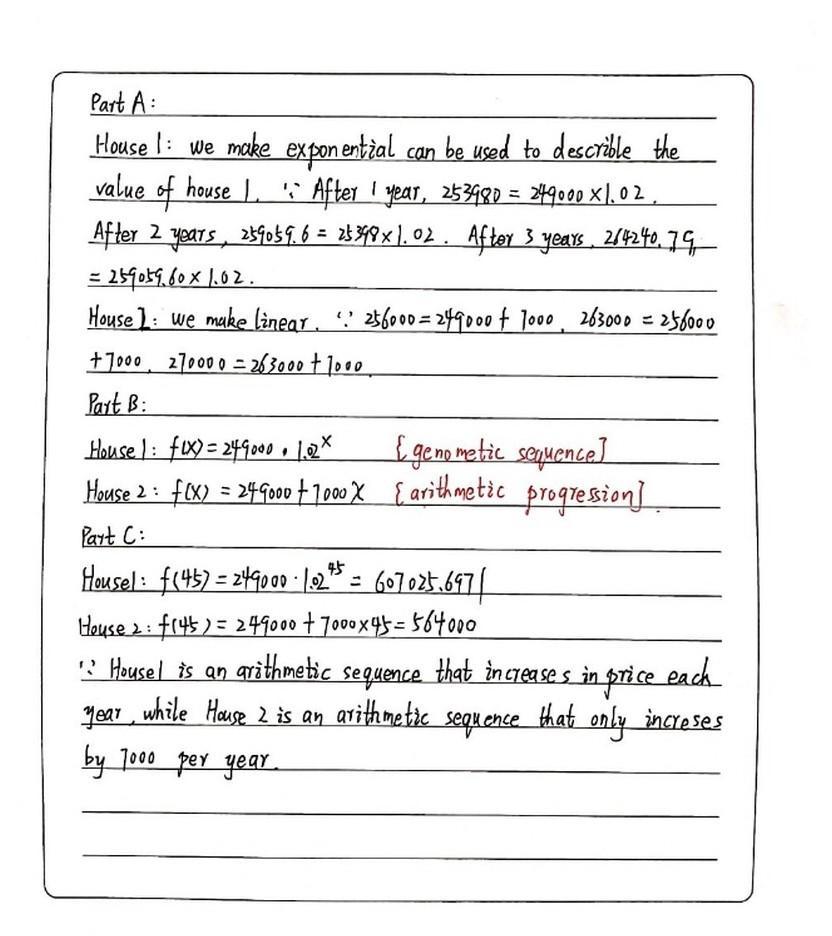 Part A:
House 1: we make exponential can be used to describle the
value of house 1. ∵ After 1 year, 253980 = 249000×1.02.
After 2 years, 259059.6 = 25398×1.02. After 3 years, 264240.79
= 259059.60×1.02.
House 2: we make linear. ∵ 256000=249000+7000, 263000 = 256000
+7000, 270000=263000+7000
Part B:
House 1: f(x)=249000·1.02^x {genometic sequence}
House 2: f(x) = 249000+7000x {arithmetic progression}.
Part C:
House1: f(45)=249000·1.02^45 = 607025.6971
House 2: f(45)=249000+7000×45=564000
∵ House1 is an arithmetic sequence that increases in price each
year, while House 2 is an arithmetic sequence that only increses
by 7000 per year.